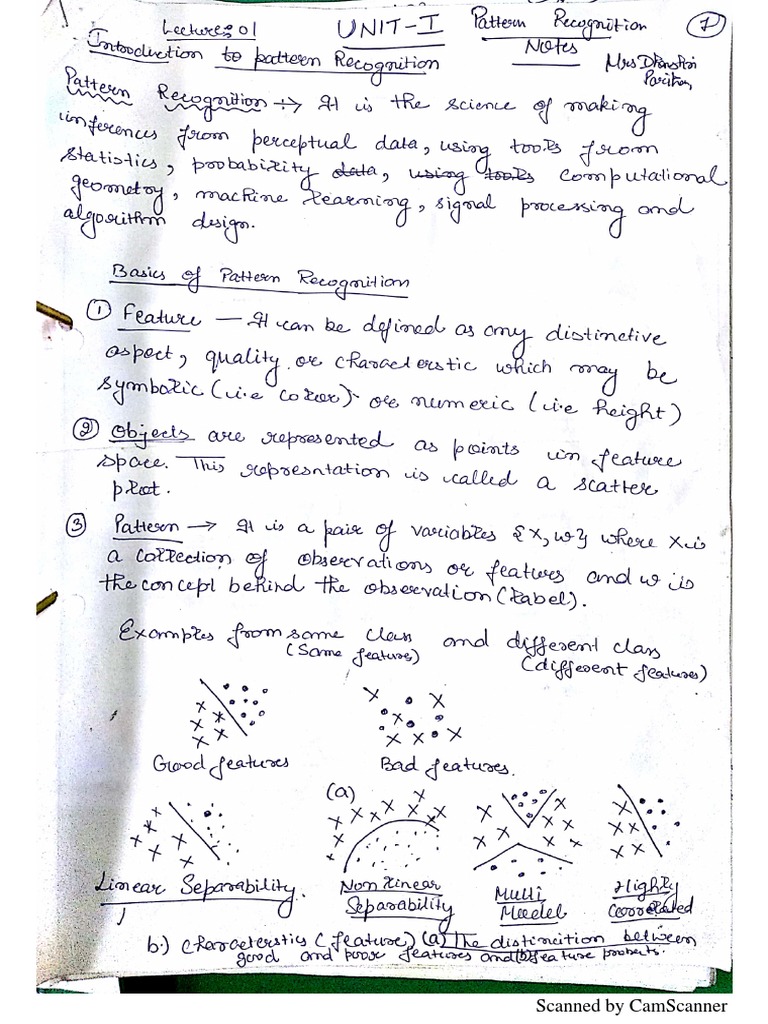 Lectures 01 UNIT-I Pattern Recognition 1
Introduction to pattern Recognition Notes Mrs
Pattern Recognition :→ It is the science of making
inferences from perceptual data, using tools from
statistics, probability data, using tools computational
geometry, machine learning, signal processing and
algorithm design.
Basics of Pattern Recognition
① Feature — It can be defined as any distinctive
aspect, quality or characterstic which may be
symbolic (i.e color) or numeric (i.e height)
② Objects are represented as points in feature
space. This represntation is called a scatter
plot.
③ Pattern → It is a pair of variables {x, w} where x is
a collection of observations or features and w is
the concept behind the observation (label).
Examples from same class and different class
(Same features) (different features)
Good features Bad features.
(a)
Linear Separability. Non linear Separability Multi Model Highly Correlated
b.) Characterstics (feature) (a) The distinction between
good and poor features and (b) feature proberts.
Scanned by CamScanner